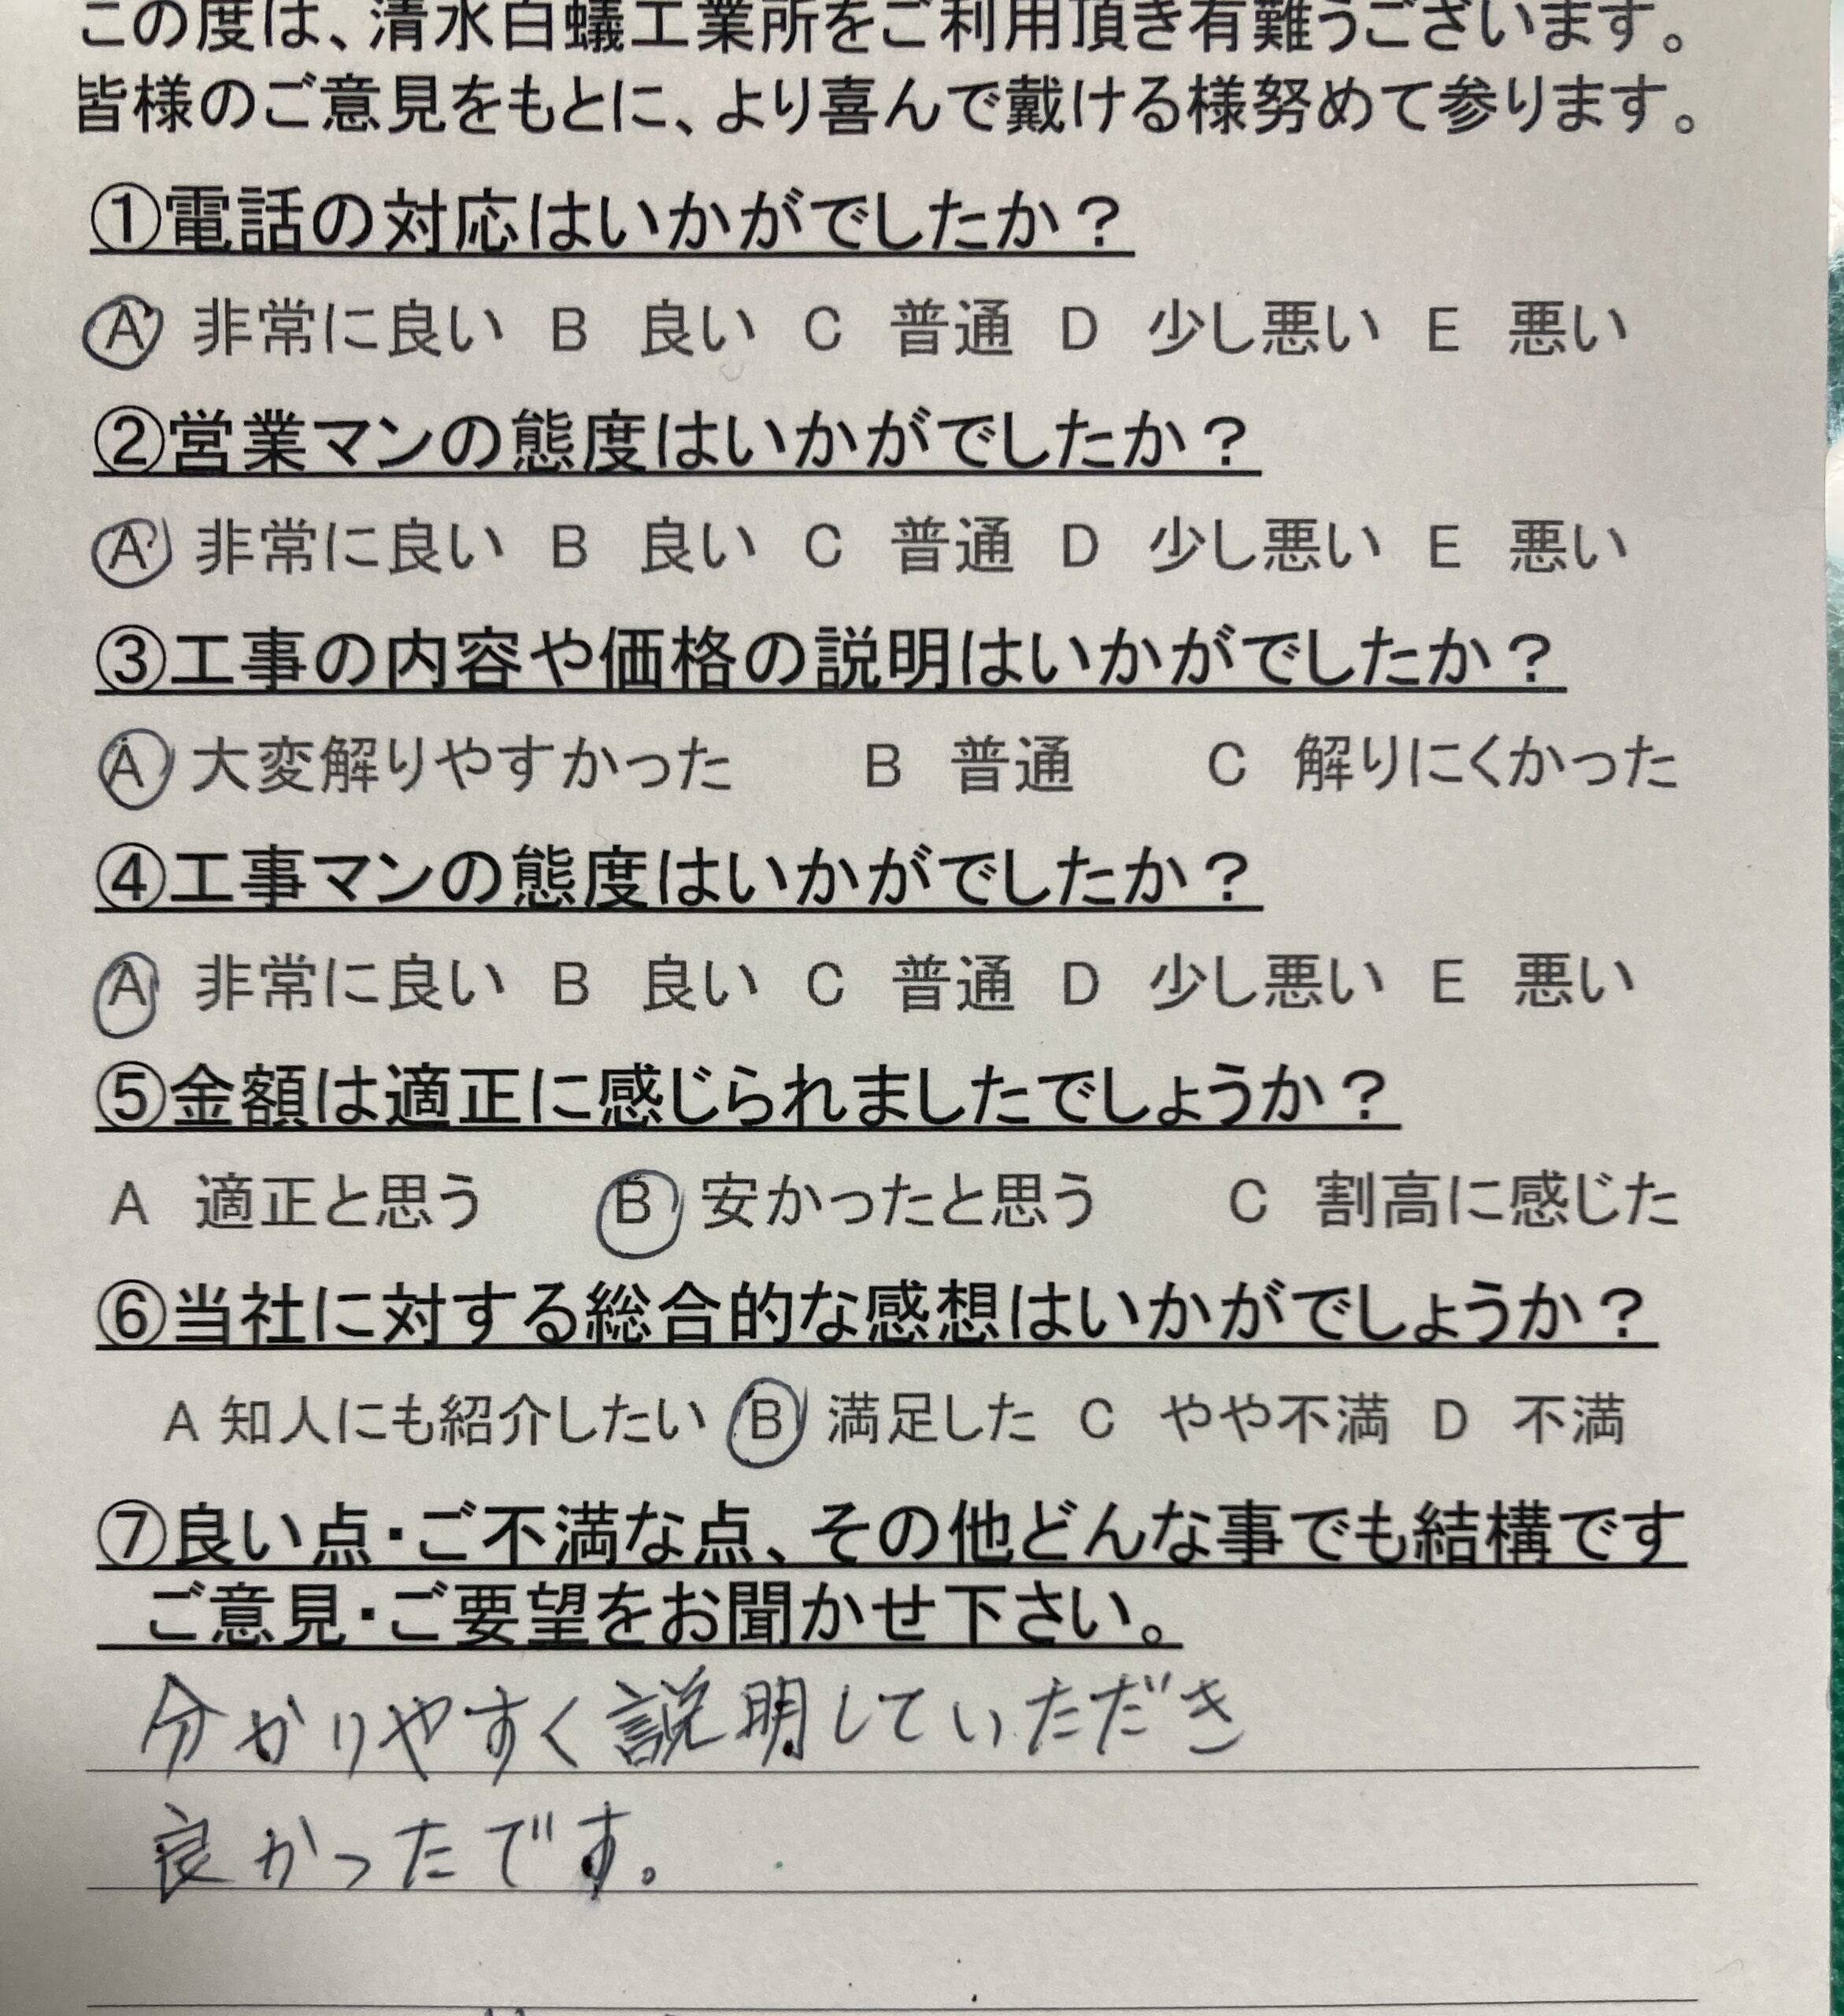 この度は、清水白蟻工業所をご利用頂き有難うございます。
皆様のご意見をもとに、より喜んで戴ける様努めて参ります。
①電話の対応はいかがでしたか？
A 非常に良い B 良い C 普通 D 少し悪い E 悪い
②営業マンの態度はいかがでしたか？
A 非常に良い B 良い C 普通 D 少し悪い E 悪い
③工事の内容や価格の説明はいかがでしたか？
A 大変解りやすかった B 普通 C 解りにくかった
④工事マンの態度はいかがでしたか？
A 非常に良い B 良い C 普通 D 少し悪い E 悪い
⑤金額は適正に感じられましたでしょうか？
A 適正と思う B 安かったと思う C 割高に感じた
⑥当社に対する総合的な感想はいかがでしょうか？
A 知人にも紹介したい B 満足した C やや不満 D 不満
⑦良い点・ご不満な点、その他どんな事でも結構です
ご意見・ご要望をお聞かせ下さい。
分かりやすく説明していただき
良かったです。